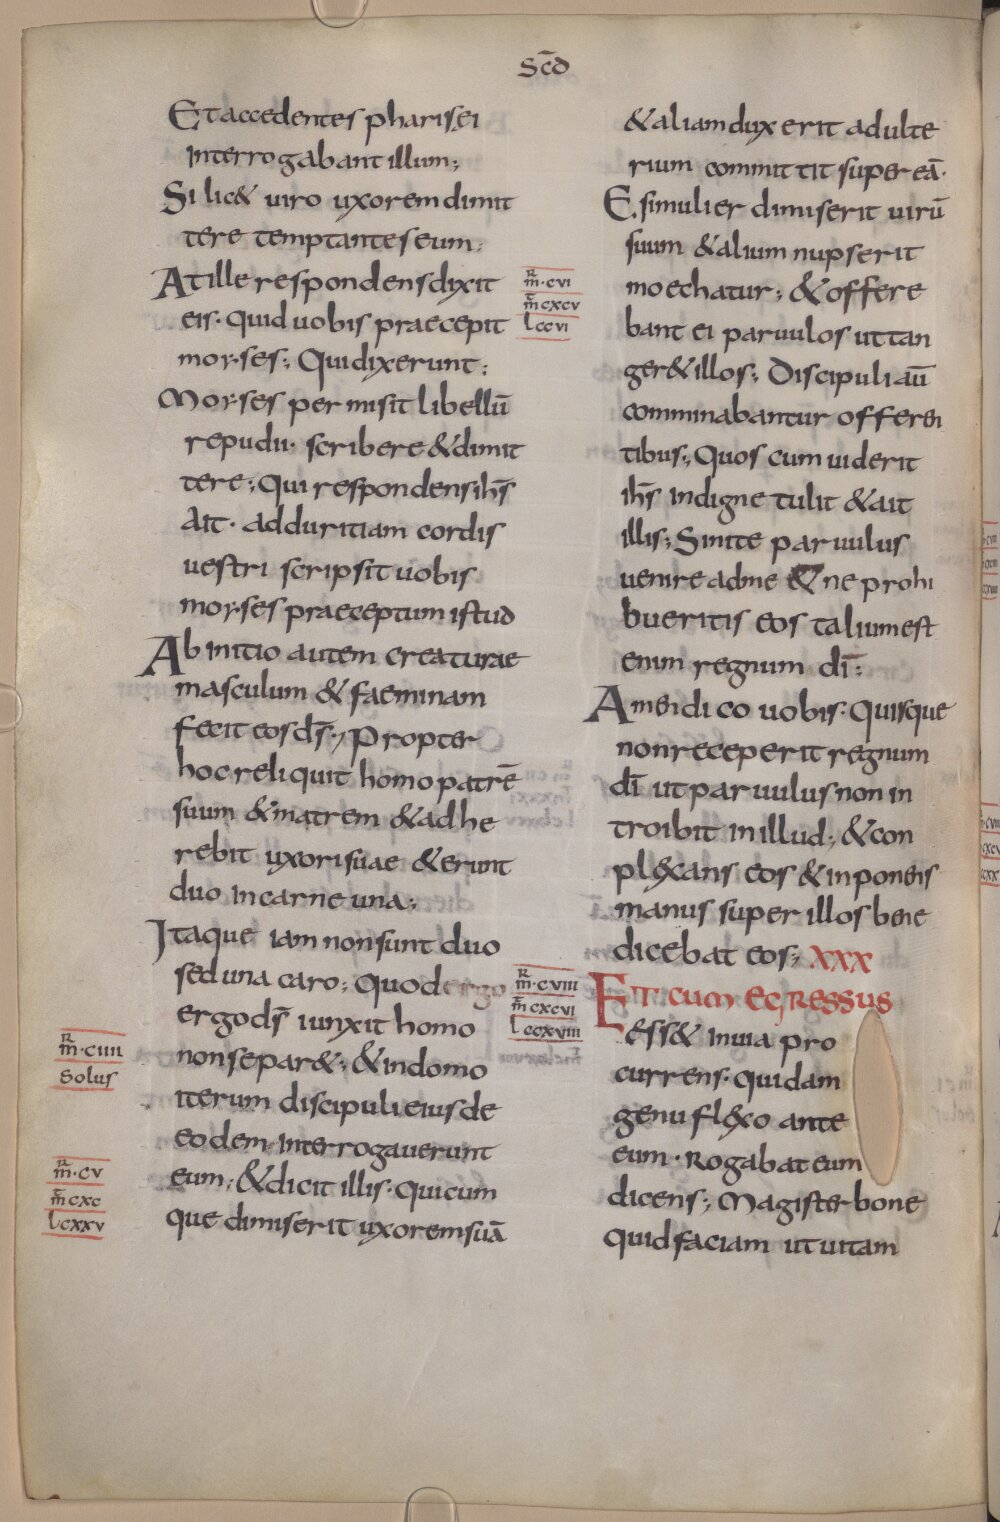 Scd̄
Et accedentes pharisęi
interrogabant illum;
Si lic& uiro uxorem dimit
tere temptantes eum;
At ille respondens dixit
eis · Quid uobis praecepit
moyses; Qui dixerunt;
Moyses permisit libellū
repudii · scribere & dimit
tere; Qui respondens ihs̄
ait · ad duritiam cordis
uestri scripsit uobis
moyses praeceptum istud
Ab initio autem creaturae
masculum & faeminam
fecit eos ds̄; Propter
hoc reliquit homo patrē
suum & matrem & adhe
rebit uxori suae & erunt
duo in carne una;
Itaque iam non sunt duo
sed una caro; Quod ergo
ergo ds̄ iunxit homo
non separ&; & in domo
iterum discipuli eius de
eodem interrogauerunt
eum; & dicit illis · Quicum
que dimiserit uxorem suā
m̄ · ciiii
Solus
m̄ · cv
m̄ cxc
l cxxv
m̄ · cvi
m̄ cxcv
l ccvi
m̄ · cviii
m̄ cxcvi
l ccxviii
& aliam duxerit adulte
rium committit super eā ·
E, si mulier dimiserit uirū
suum & alium nupserit
moechatur; & offere
bant ei paruulos ut tan
ger& illos; Discipuli aū
comminabantur offeren
tibus; Quos cum uiderit
ihs̄ indigne tulit & ait
illis; Sinite paruulus
uenire ad me & ne prohi
bueritis eos talium est
enim regnum dī;
Amen dico uobis · Quisque
non receperit regnum
dī ut paruulus non in
troibit in illud; & con
pl&cans eos & inponens
manus super illos bene
dicebat eos; XXX
Et cum egressus
ess& in uia pro
currens · quidam
genu fl&xo ante
eum · Rogabat eum
dicens; Magister bone
quid faciam ut uitam